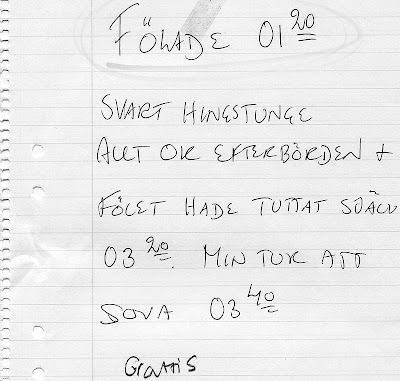 FÖLADE 01 20
SVART HINGSTUNGE
ALLT OK EFTERBÖRDEN +
FÖLET HADE TUTTAT SJÄLV
03 20. MIN TUR ATT
SOVA 03 40
Grattis